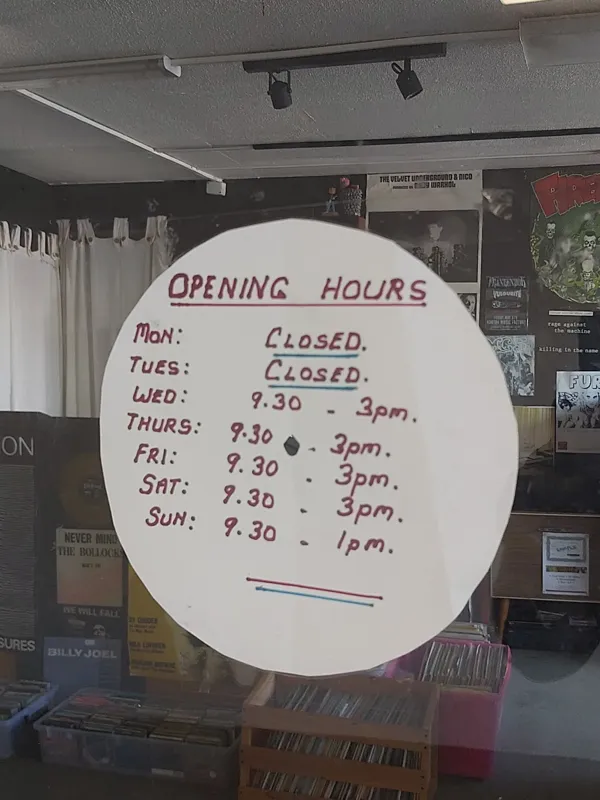 OPENING HOURS
MON: CLOSED.
TUES: CLOSED.
WED: 9.30 - 3pm.
THURS: 9.30 - 3pm.
FRI: 9.30 - 3pm.
SAT: 9.30 - 3pm.
SUN: 9.30 - 1pm.
THE VELVET UNDERGROUND & NICO
ANDY WARHOL
rage against
the machine
killing in the name
FUR
ON
NEVER MIND
THE BOLLOCKS
WE WILL FALL
SURES
BILLY JOEL